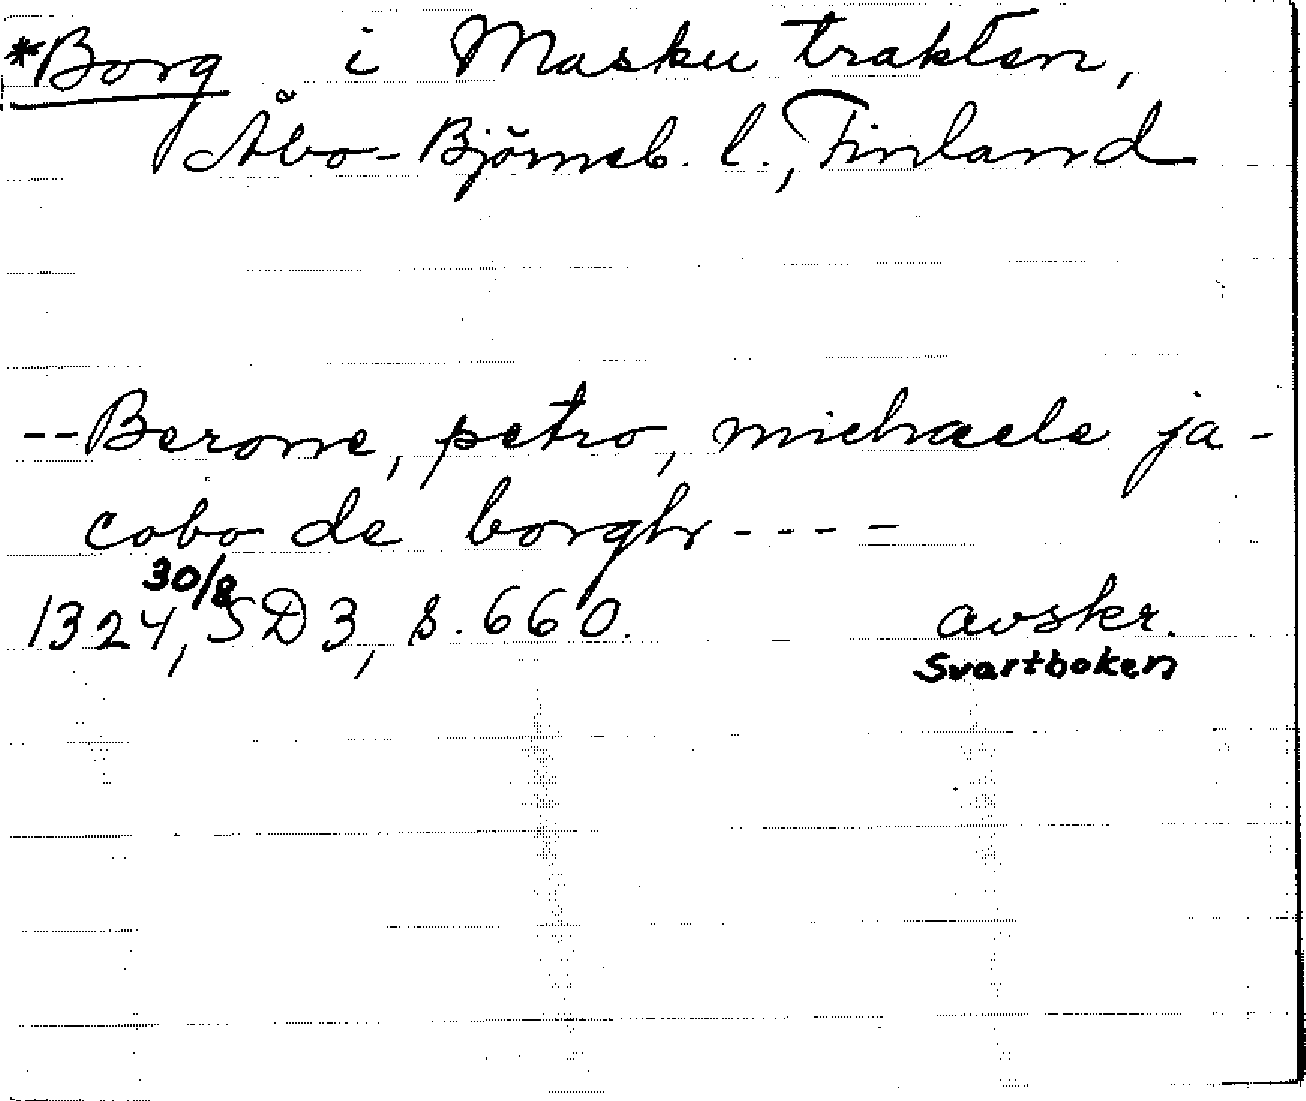 *Borg i Masku trakten,
Åbo-Björneb. l., Finland
--Berone, petro, michaele ja-
cobo de borgh ----
30/8
1324, SD3, s. 660. avskr.
Svartboken